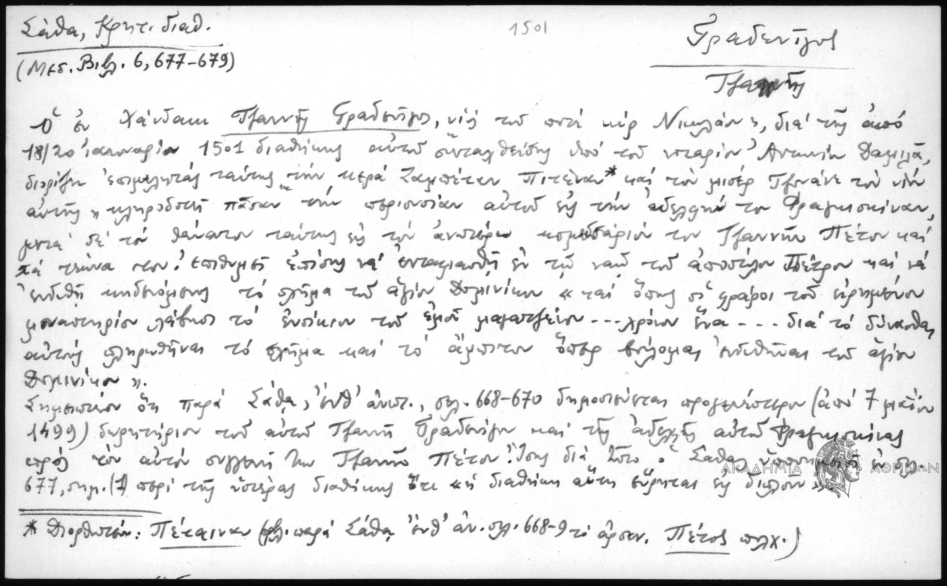 Σάθα, Κρητ. διαθ.
1501
Γραδενῖγος
(Μεσ. Βιβλ. 6, 677-679)
Τζαννῆς
Ὁ ἐν Χάνδακι Τζαννῆς Γραδενῖγος, υἱὸς τοῦ ποτὲ κὺρ Νικολάου, διὰ τῆς ἀπὸ
18/20 ἰανουαρίου 1501 διαθήκης αὐτοῦ συνταχθείσης ὑπὸ τοῦ νοταρίου Ἀντωνίου Δαμιλᾶ,
διορίζει ἐπιμελητὰς ταύτης τὴν κερὰ Ζαμπέταν Πιτέναν* καὶ τὸν μισὲρ Τζουάνε τὸν υἱὸν
αὐτῆς· κληροδοτεῖ πᾶσαν τὴν περιουσίαν αὐτοῦ εἰς τὴν ἀδελφήν του Φραγκισκίναν,
μετὰ δὲ τὸν θάνατον ταύτης εἰς τὸν ἀνωτέρω κομεσάριόν του Τζαννῆν Πέτον καὶ
τὰ τέκνα του. Ἐπιθυμεῖ ἐπίσης νὰ ἐνταφιασθῇ ἐν τῷ ναῷ τοῦ ἀποστόλου Πέτρου καὶ νὰ
ἐνδυθῇ κηδευόμενος τὸ σχῆμα τοῦ ἁγίου Δομινίκου « καὶ ὅπως οἱ φράροι τοῦ εἰρημένου
μοναστηρίου λάβωσι τὸ ἐνοίκιον τοῦ ἐμοῦ μαγατζείου --- χρόνον ἕνα --- διὰ τὸ δύνασθαι
αὐτοὺς πληρωθῆναι τὸ σχῆμα καὶ τὸ ἄμπιτον ὅπερ βούλομαι ἐνδυθῆναι τοῦ ἁγίου
Δομινίκου ».
Σημειωτέον ὅτι παρὰ Σάθᾳ, ἔνθ' ἀνωτ., σελ. 668-670 δημοσιεύεται προγενέστερον (ἀπὸ 7 μαΐου
1499) δωρητήριον τοῦ αὐτοῦ Τζαννῆ Γραδενίγου καὶ τῆς ἀδελφῆς αὐτοῦ Φραγκισκίνας
πρὸς τὸν αὐτὸν συγγενῆ των Τζαννῆν Πέτον. Ἴσως διὰ τοῦτο ὁ Σάθας ἐν σελ.
677, σημ. (1) περὶ τῆς ὑστέρας διαθήκης ὅτι « ἡ διαθήκη αὕτη εὕρηται εἰς διπλοῦν »
ΑΚΑΔΗΜΙΑ ΑΘΗΝΩΝ
* Διορθωτέον: Πέταιναν (βλ. παρὰ Σάθᾳ ἔνθ' ἀν. σελ. 668-9 τὸ ἀρσεν. Πέτος πολλχ.)